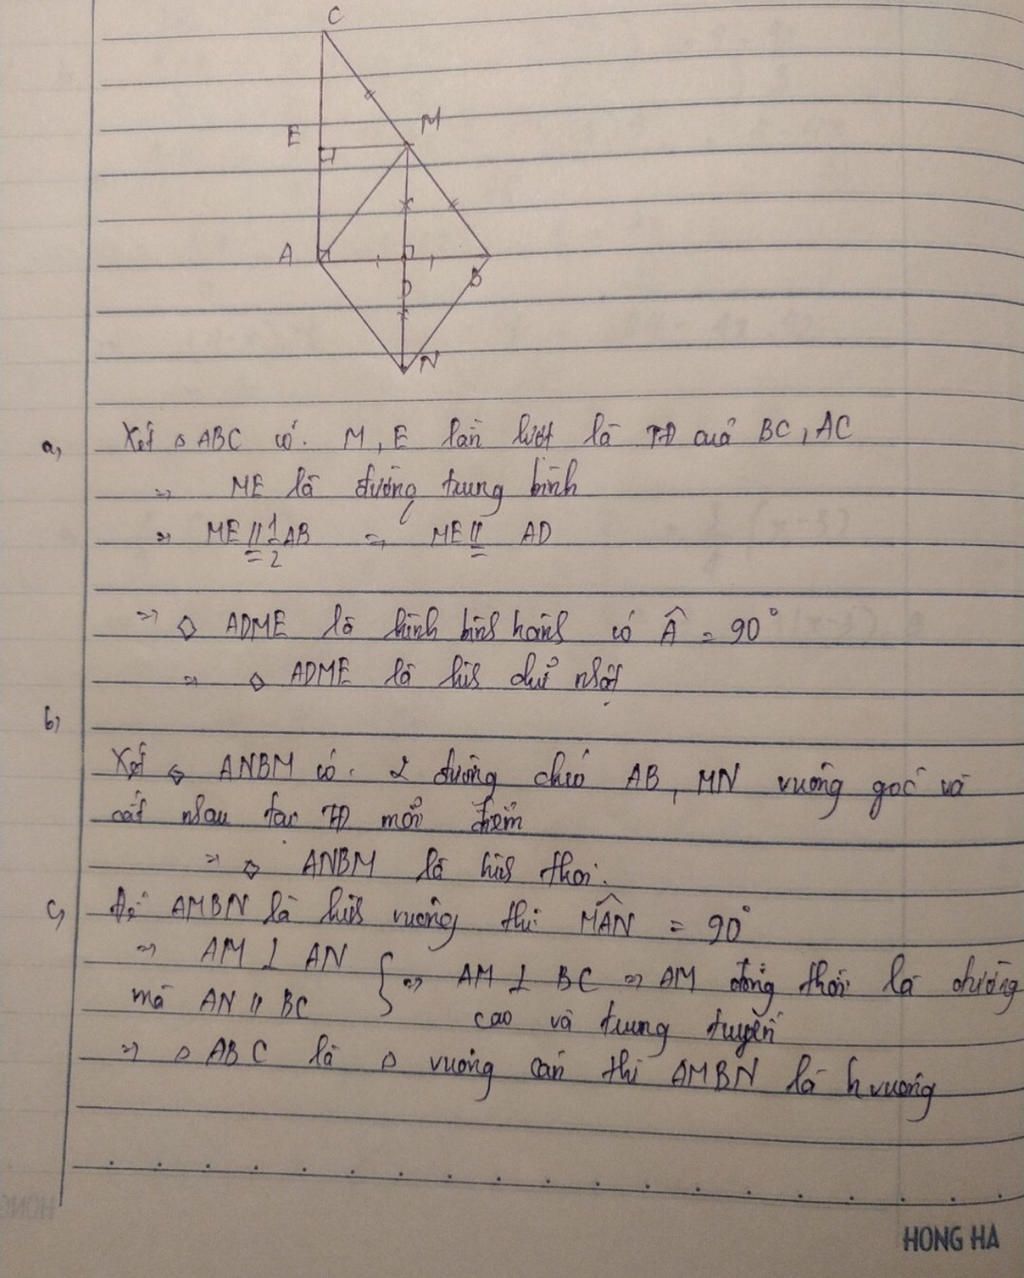 C
E
M
A
B
D
N
a, Xét △ ABC có. M, E lần lượt là TĐ của BC, AC
=> ME là đường trung bình
=> ME // = 1/2 AB => ME // = AD
=> ◇ ADME là hình bình hành có Â = 90°
=> ◇ ADME là hình chữ nhật
b,
Xét ◇ ANBM có. 2 đường chéo AB, MN vuông góc và
cắt nhau tại TĐ mỗi điểm
=> ◇ ANBM là hình thoi.
c, Để AMBN là hình vuông thì MÂN = 90°
=> AM ⊥ AN
mà AN // BC } => AM ⊥ BC => AM đồng thời là đường
cao và trung tuyến
=> △ ABC là △ vuông cân thì AMBN là h vuông
HONG HA